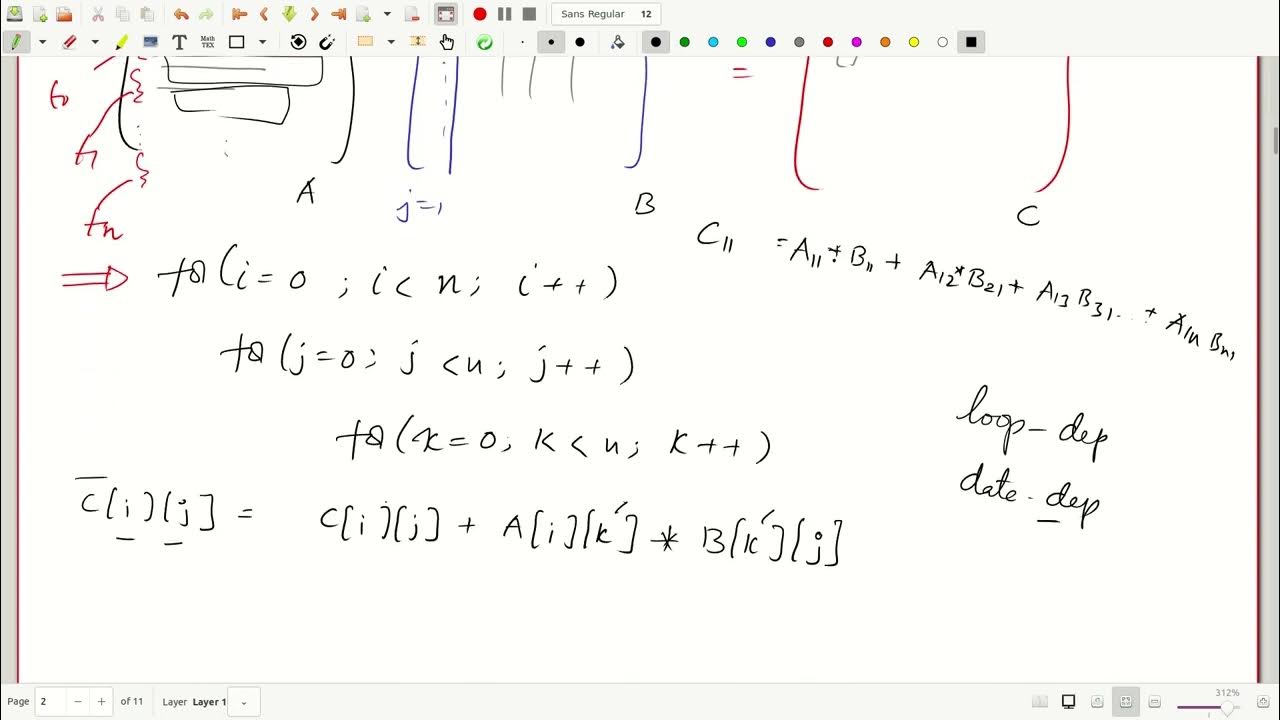 Sans Regular 12
Math
TEX
T
t0
t1
tn
=
A
j=1
B
C
C11 = A11 * B11 + A12 * B21 + A13 B31 ... + A1n Bn1
⇒ for (i = 0 ; i < n ; i ++ )
for (j = 0 ; j < n ; j ++ )
for (k = 0 ; k < n ; k ++ )
C[i][j] = C[i][j] + A[i][k] * B[k][j]
loop - dep
date - dep
Page 2 of 11 Layer Layer 1
312%